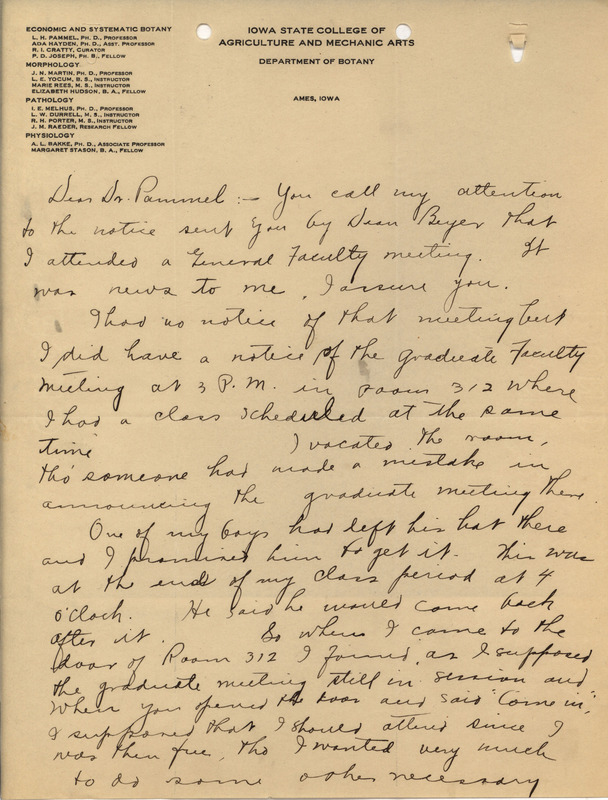 ECONOMIC AND SYSTEMATIC BOTANY
L. H. PAMMEL, PH. D., PROFESSOR
ADA HAYDEN, PH. D., ASST. PROFESSOR
R. I. CRATTY, CURATOR
P. D. JOSEPH, PH. B., FELLOW
MORPHOLOGY
J. N. MARTIN, PH. D., PROFESSOR
L. E. YOCUM, B. S., INSTRUCTOR
MARIE REES, M. S., INSTRUCTOR
ELIZABETH HUDSON, B. A., FELLOW
PATHOLOGY
I. E. MELHUS, PH. D., PROFESSOR
L. W. DURRELL, M. S., INSTRUCTOR
R. H. PORTER, M. S., INSTRUCTOR
J. M. RAEDER, RESEARCH FELLOW
PHYSIOLOGY
A. L. BAKKE, PH. D., ASSOCIATE PROFESSOR
MARGARET STASON, B. A., FELLOW
IOWA STATE COLLEGE OF
AGRICULTURE AND MECHANIC ARTS
DEPARTMENT OF BOTANY
AMES, IOWA
Dear Dr. Pammel :- You call my attention
to the notice sent you by Dean Beyer that
I attended a General Faculty meeting. It
was news to me, I assure you.
I had no notice of that meeting but
I did have a notice of the graduate Faculty
meeting at 3 P.M. in room 312 where
I had a class scheduled at the same
time I vacated the room,
tho' someone had made a mistake in
announcing the graduate meeting there.
One of my boys had left his hat there
and I promised him to get it. This was
at the end of my class period at 4
o'clock. He said he would come back
after it. So when I came to the
door of Room 312 I found, as I supposed
the graduate meeting still in session and
when you opened the door and said "Come in",
I supposed that I should attend since I
was then free, tho I wanted very much
to do some other necessary